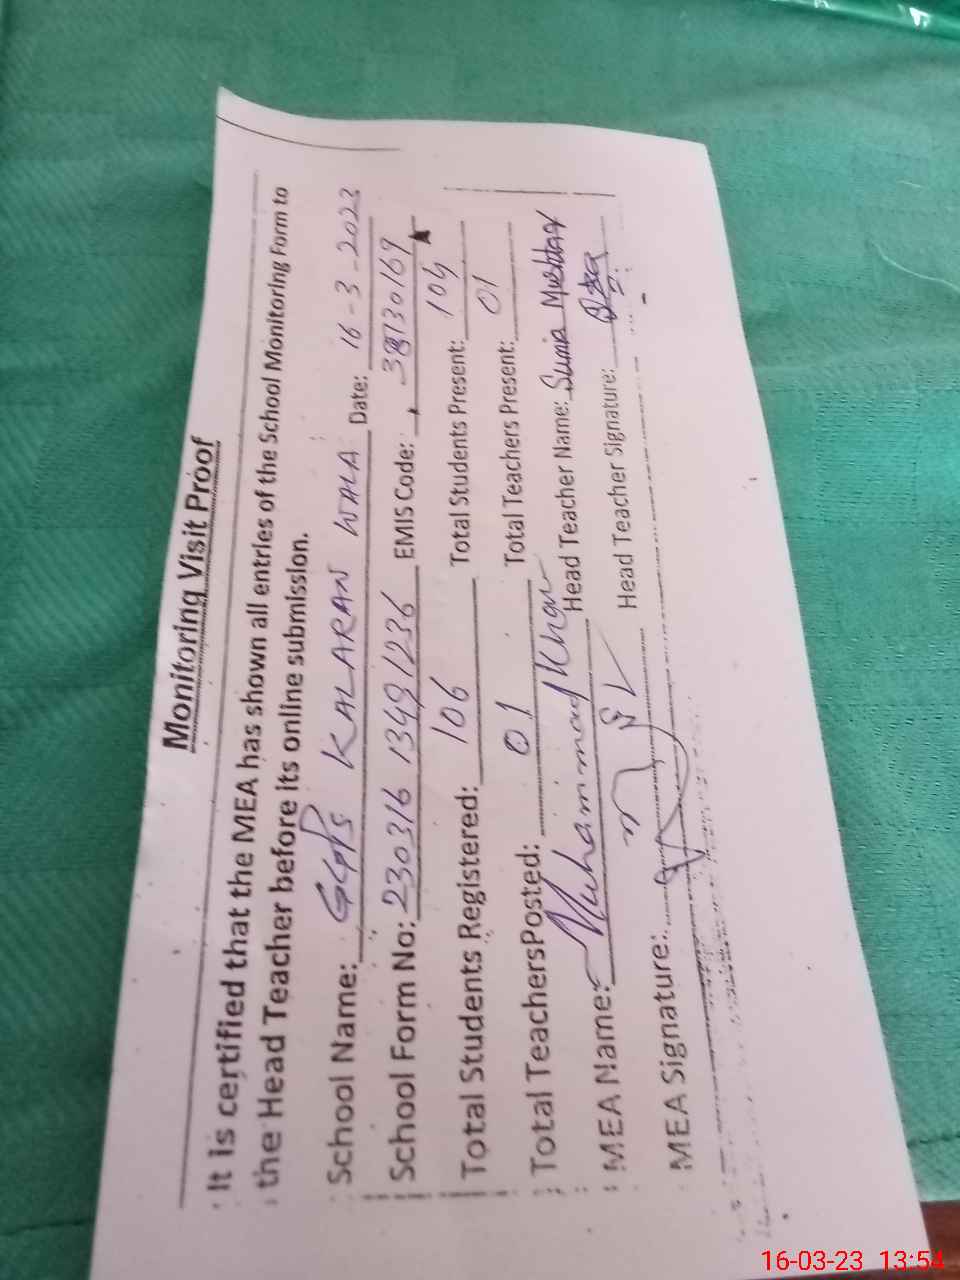 Monitoring Visit Proof
It is certified that the MEA has shown all entries of the School Monitoring Form to
the Head Teacher before its online submission.
School Name: GGPS KALARAN WALA Date: 16-3-2023
School Form No: 230316 13491236 EMIS Code: 38130169
Total Students Registered: 106 Total Students Present: 104
Total TeachersPosted: 01 Total Teachers Present: 01
MEA Name: Muhammad Khan Head Teacher Name: Sumia Mushtaq
MEA Signature: Head Teacher Signature:
16-03-23 13:54